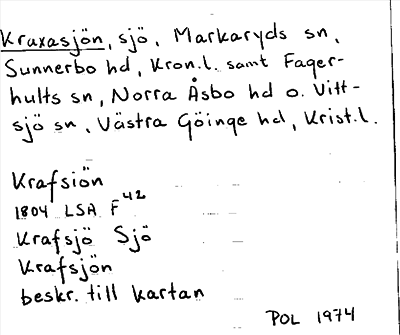 Kraxasjön, sjö, Markaryds sn,
Sunnerbo hd, Kron.l. samt Fager-
hults sn, Norra Åsbo hd o. Vitt-
sjö sn, Västra Göinge hd, Krist.l.
Krafsiön
1804 LSA F42
Krafsjö Sjö
Krafsjön
beskr. till kartan
POL 1974